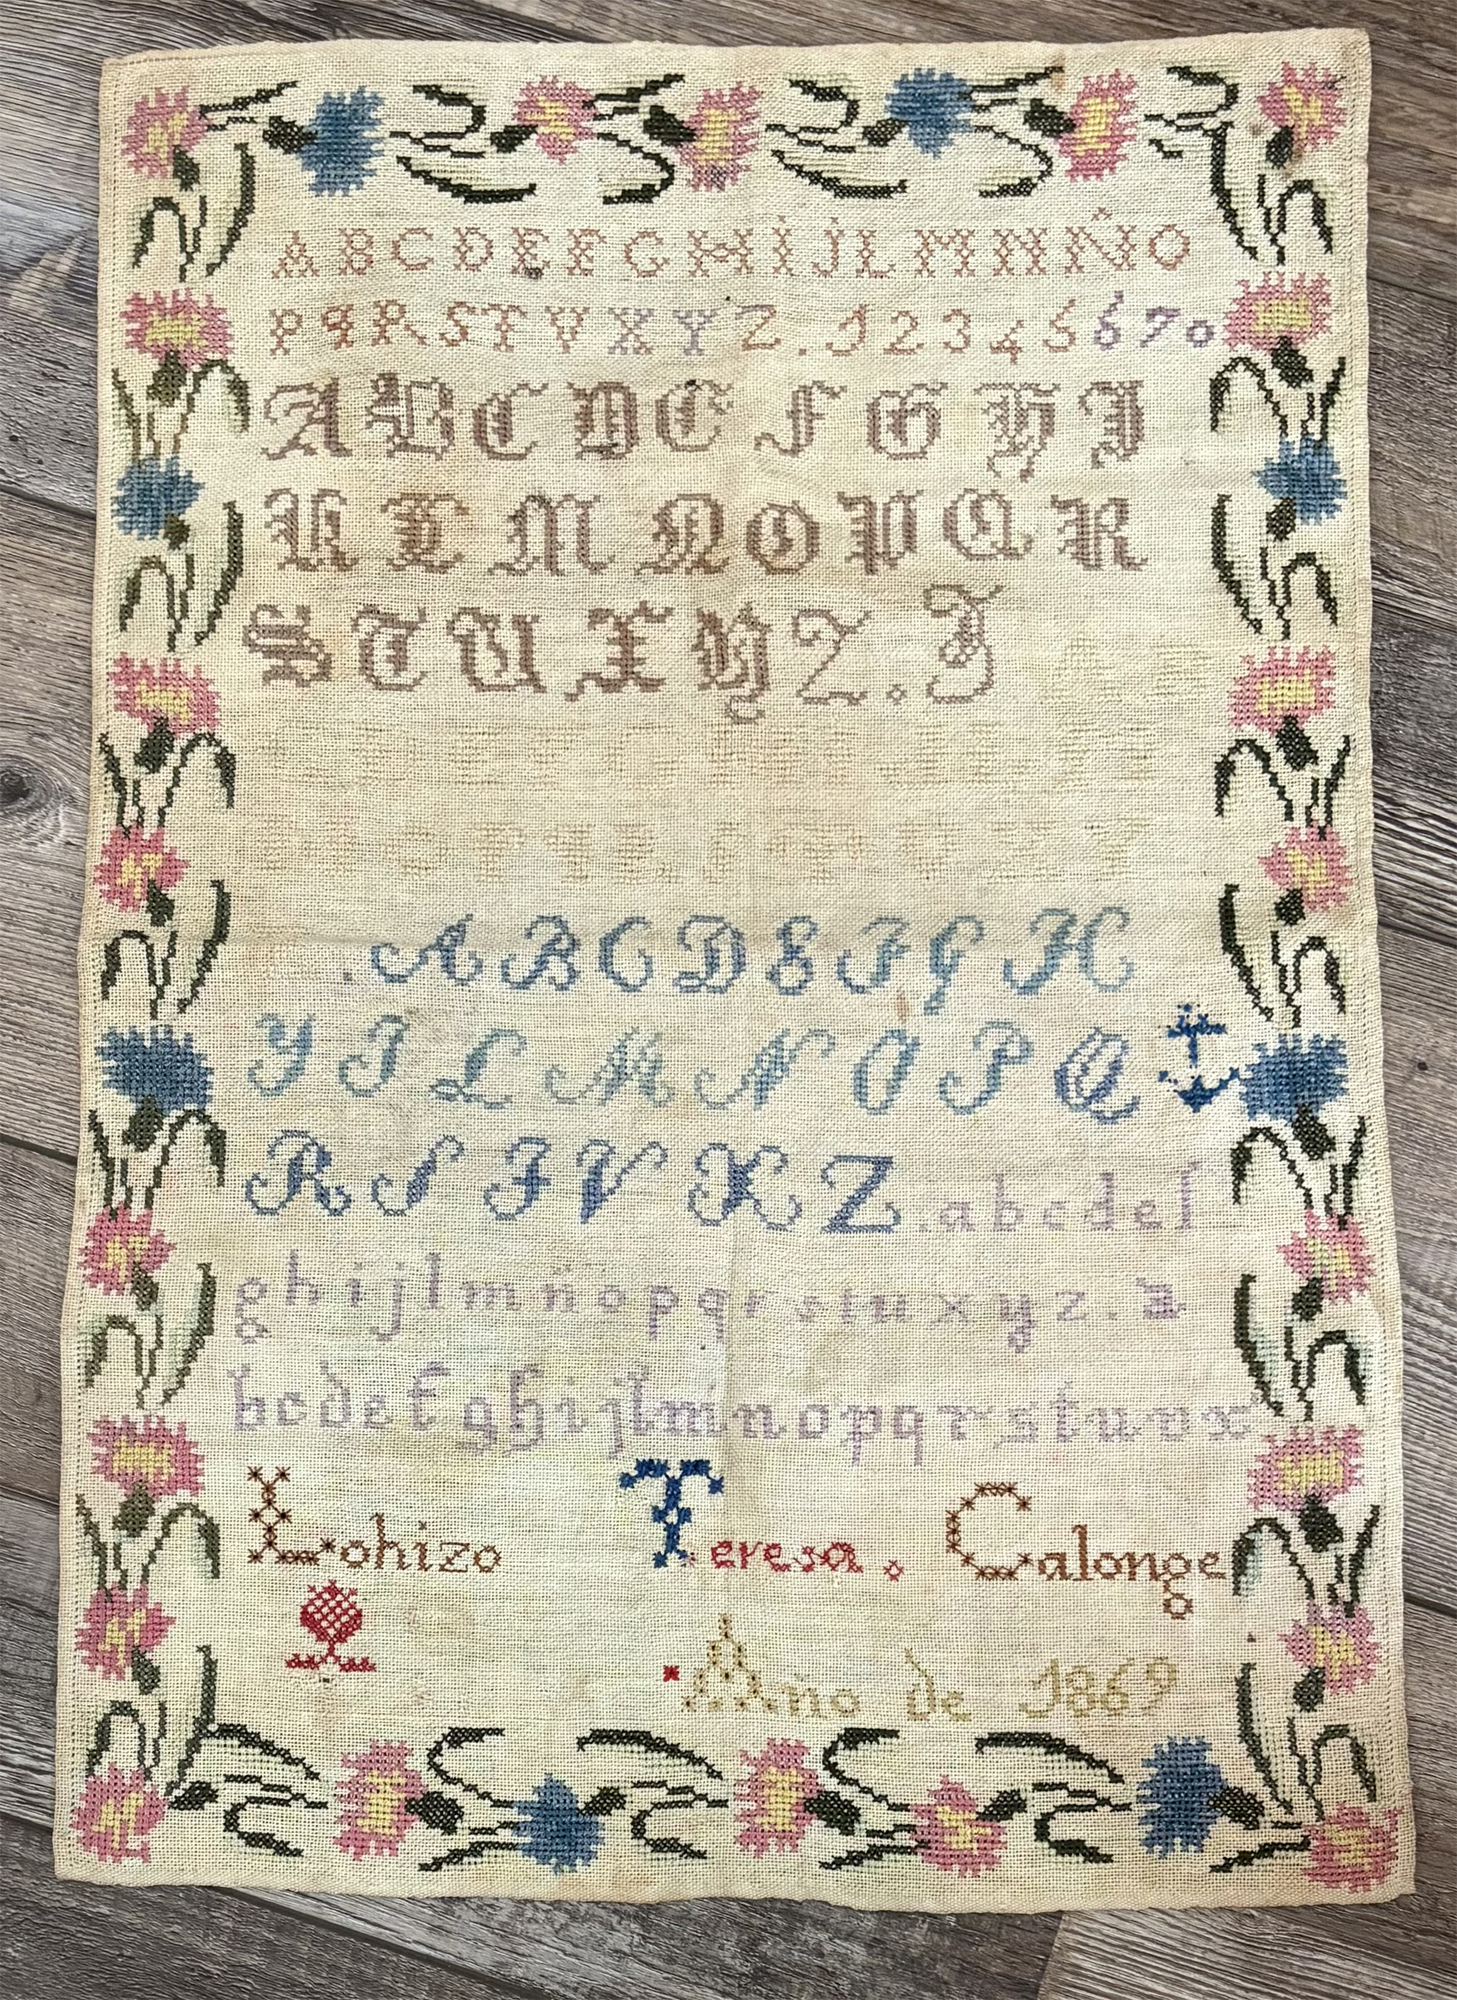 A B C D E F G H I J L M N Ñ O
P q R S T V X Y Z . 1 2 3 4 5 6 7 0
A B C D E F G H I
K L M N O P Q R
S T U X Y Z . J
A B C D E F G H
Y J L M N O P Q
R S T V X Z . a b c d e f
g h i j l m ñ o p q r s t u x y z . a
b c d e f g h i j l m n o p q r s t u v x
Lohizo Teresa . Calonge
Año de 1869